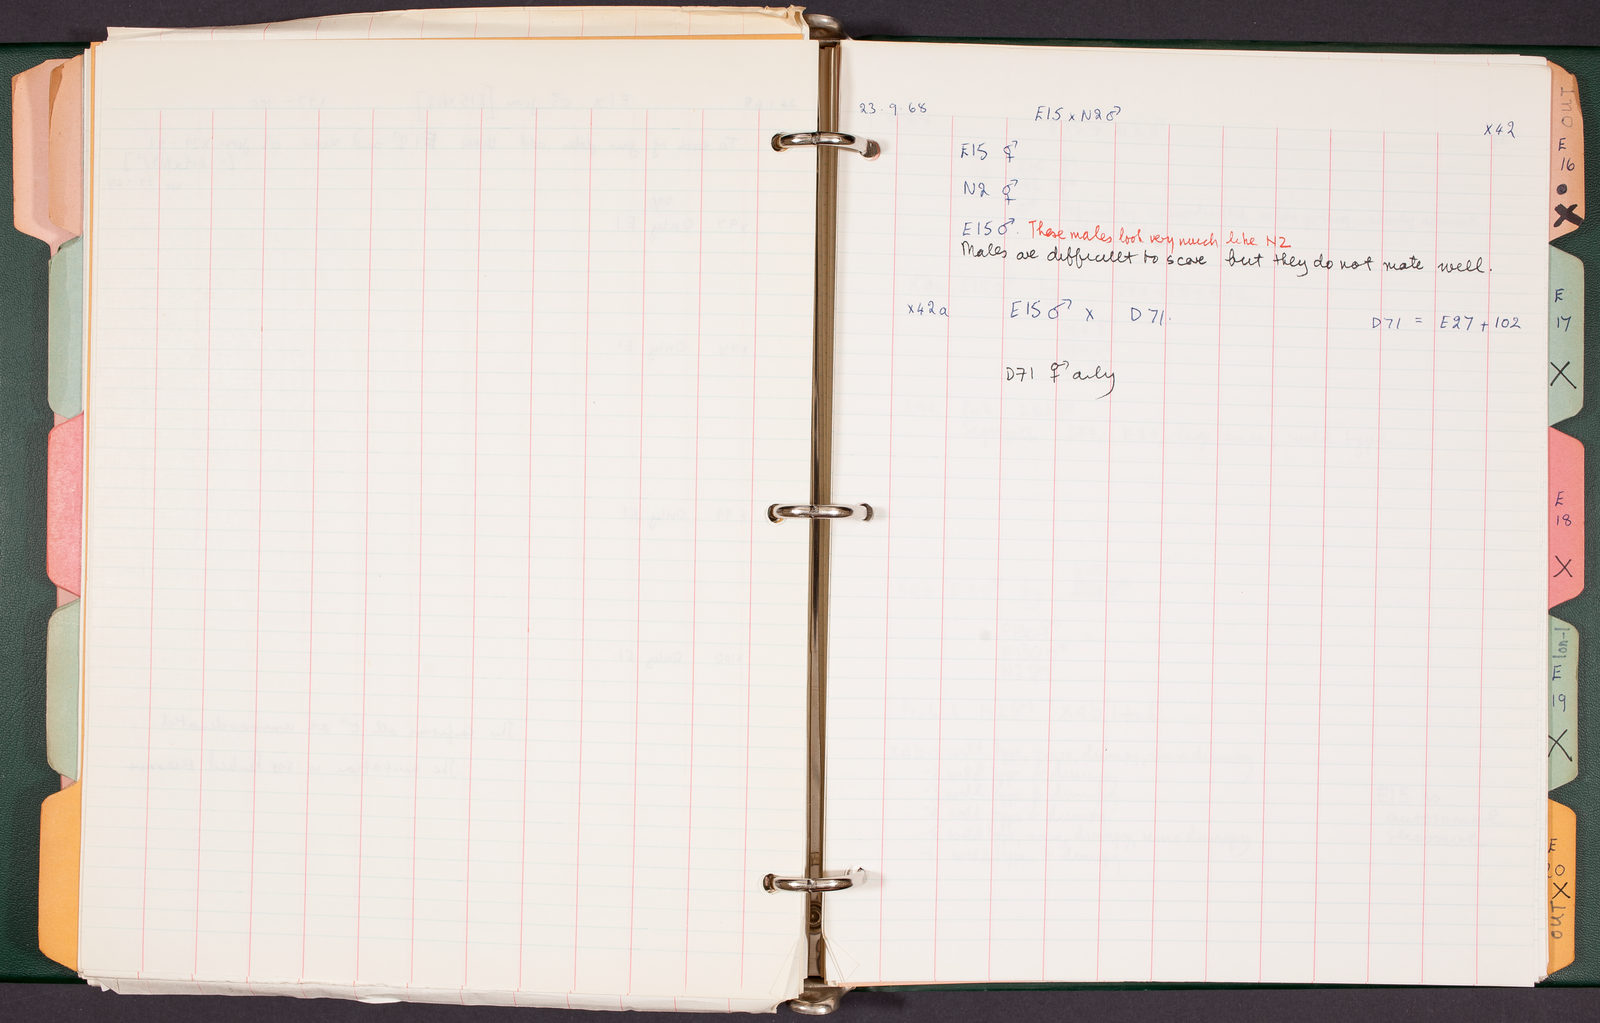 23.9.68
E15 x N2 ♂
x42
E15 ⚥
N2 ⚥
E15 ♂. These males look very much like N2
Males are difficult to score but they do not mate well.
x42a E15 ♂ x D71.
D71 = E27 + 102
D71 ⚥ only
E
16
X
E
17
X
E
18
X
E
19
X
E
20
X
OUT